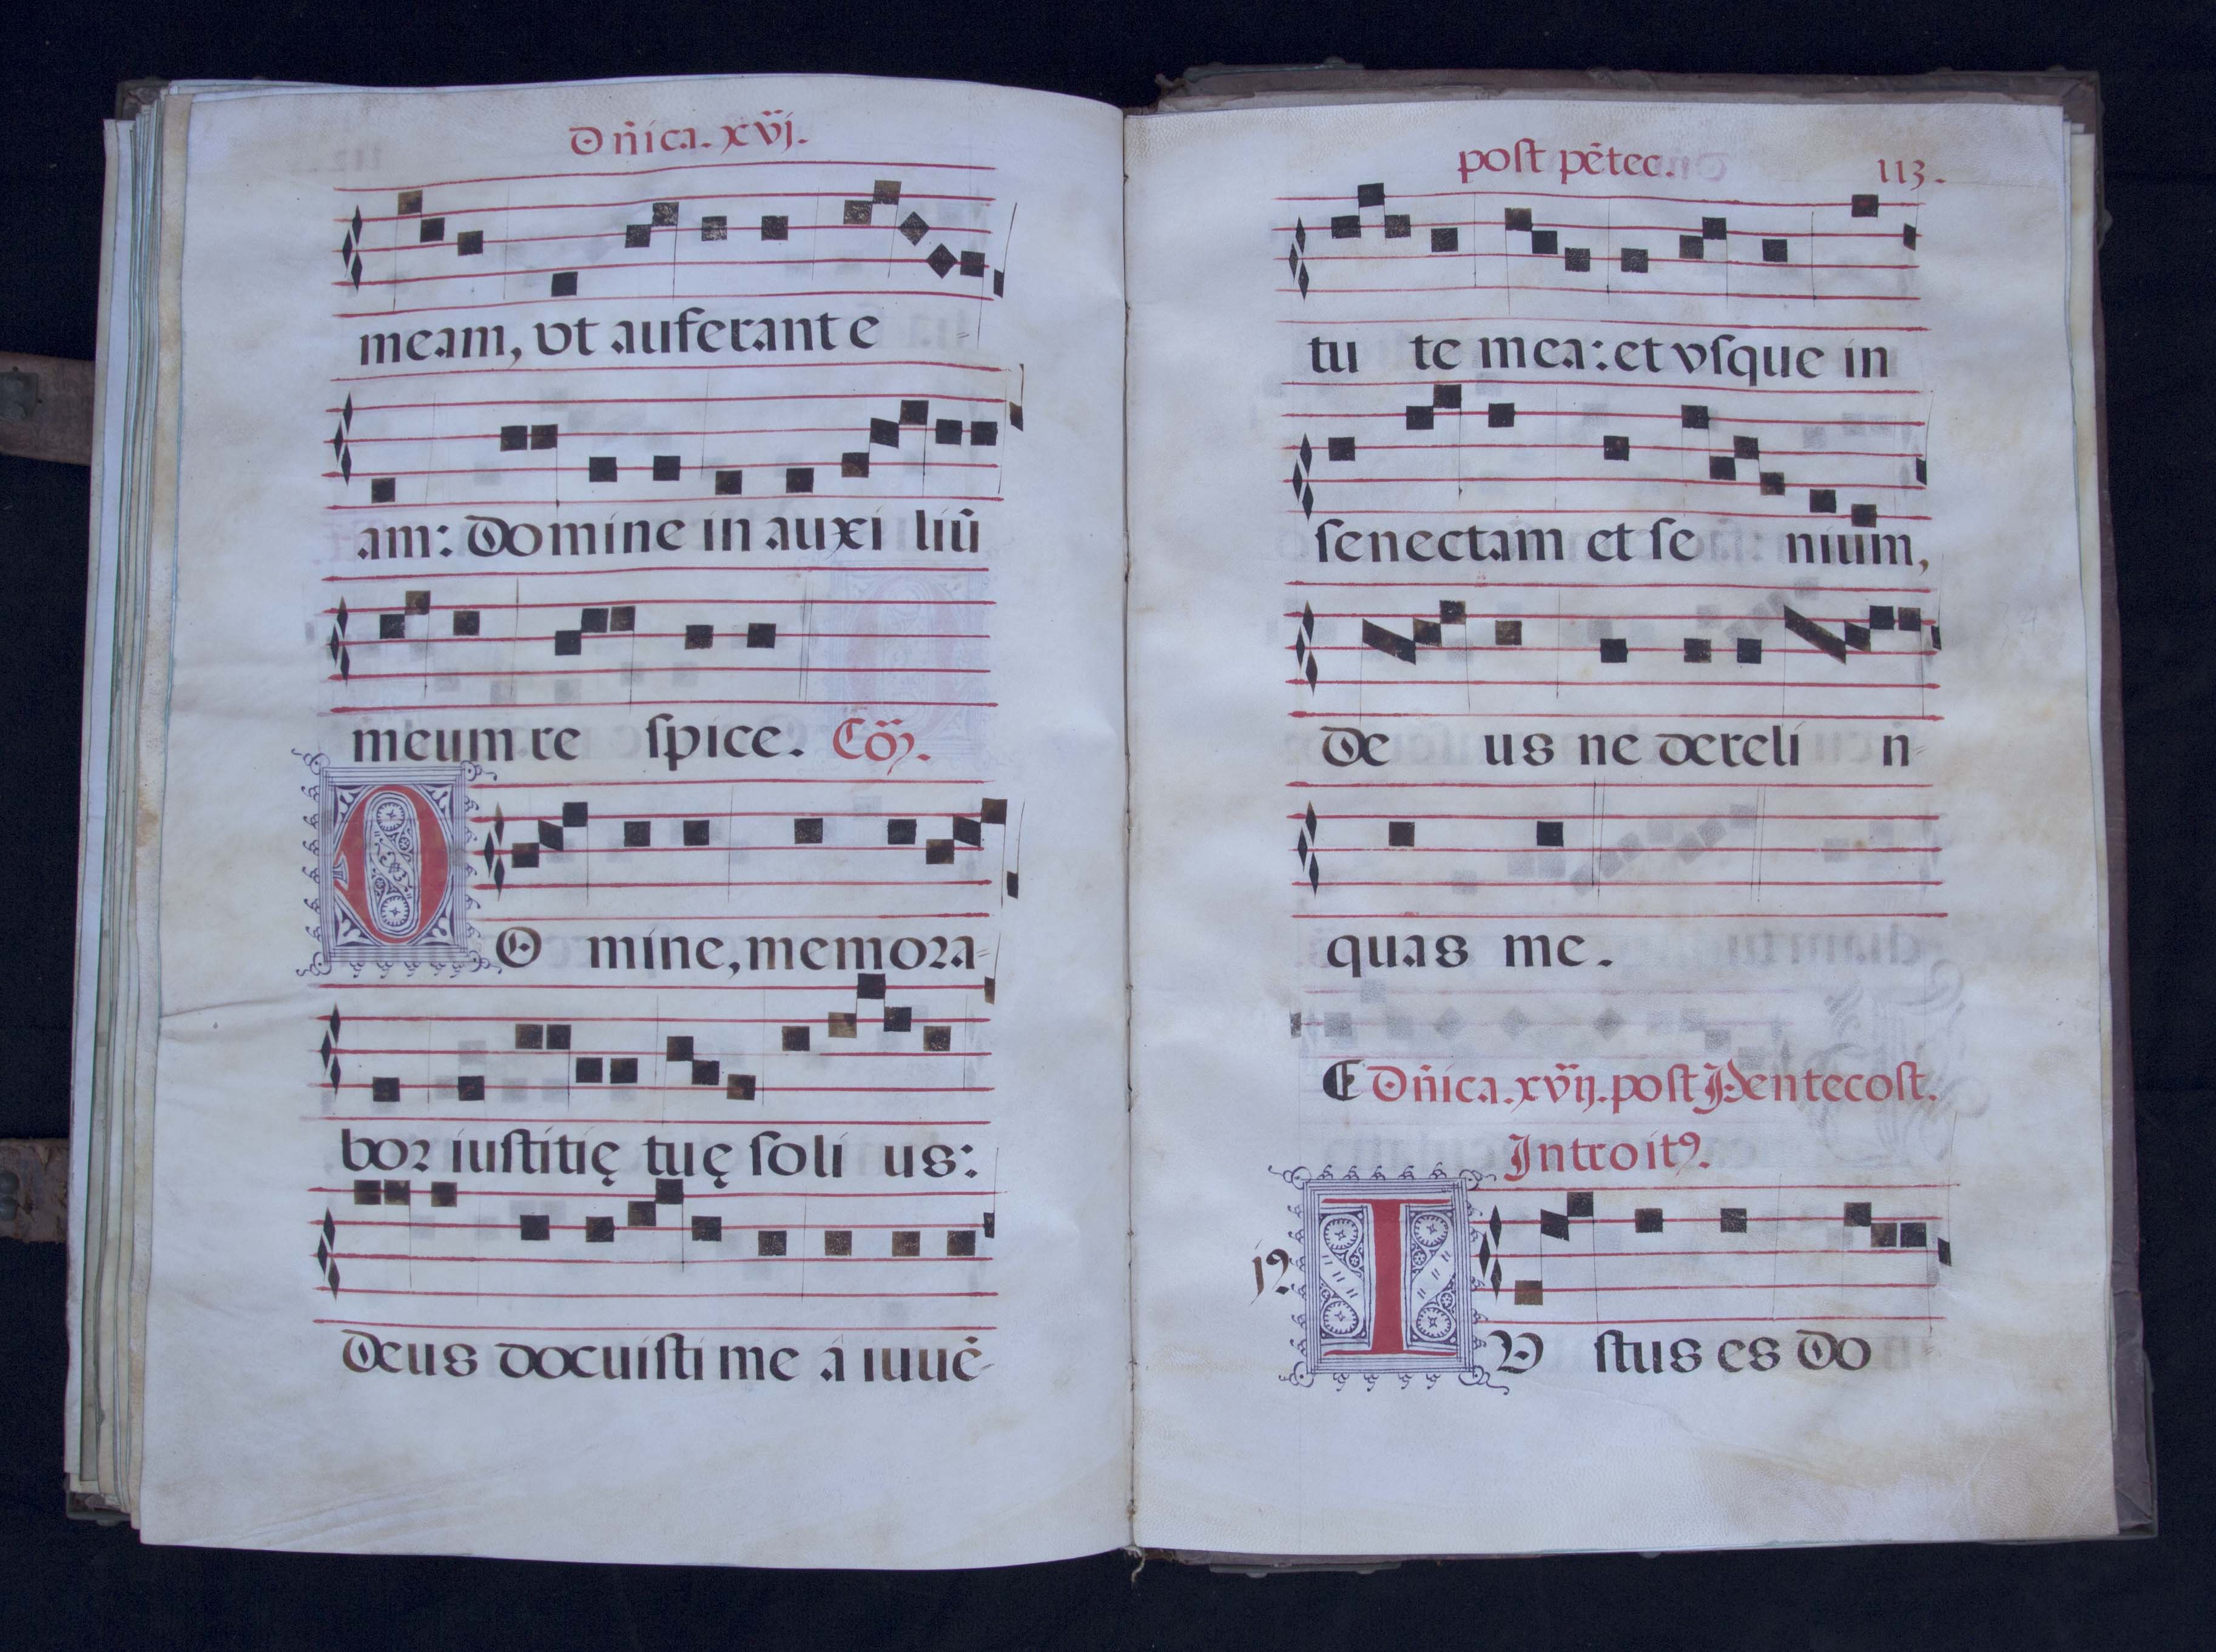 Dñica. xvj.
meam, vt auferant e
am: Domine in auxi liū
meum re spice. Cō.
DO mine, memora-
bor iuſtitię tuę ſoli us:
Deus docuiſti me á iuuē-
poſt pētec. 113.
tu te mea: et vſque in
ſenectam et ſe nium,
De us ne dereli n-
quas me.
Dñica. xvij. poſt Pentecoſt.
Introitꝰ.
IV ſtus es Do